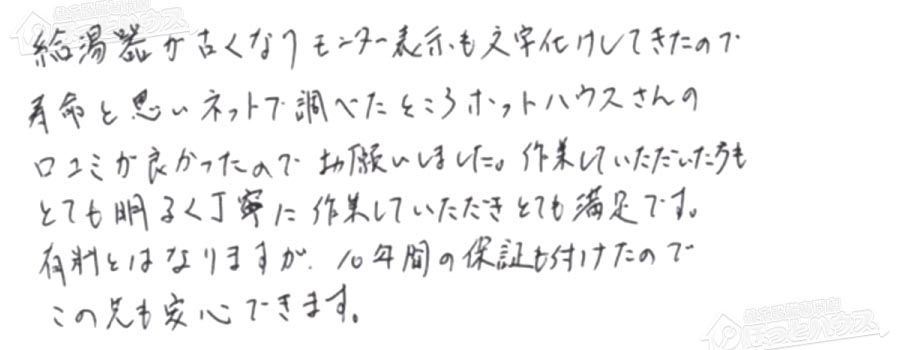 給湯器が古くなりモニター表示も文字化けしてきたので
寿命と思いネットで調べたところホットハウスさんの
口コミが良かったのでお願いしました。作業していただいた方も
とても明るく丁寧に作業していただきとても満足です。
有料とはなりますが、10年間の保証も付けたので
この先も安心できます。
ほっとハウス